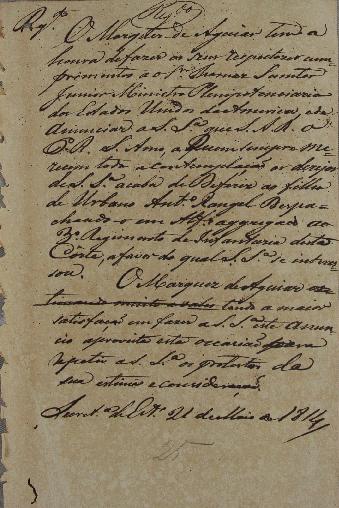 Reg.do
O Marquez de Aguiar tem a
honra de fazer os seus respeitosos cum
primentos ao Sr Thomaz Sumter
Junior Ministro Plenipotenciario
dos Estados Unidos da America, e de
Anunciar a S. S.ª que S. A. R. o
P. R. S. Amo, a Quem sempre me
recem toda a contemplação os desejos
de S. S.ª acaba de Deferir ao filho
de Urbano Ant.º Rangel Despa
chando-o em Alf.s aggregado ao
3º Regimento de Infantaria desta
Côrte, a favor do qual S. S.ª se interes
sou.
O Marquez de Aguiar
tendo a maior
satisfação em fazer a S. S.ª este Anun
cio aproveita esta occasião para
repetir a S. S.ª os protestos da
sua estima e consideração.
Secret.ª de Est.º 21 de Maio de 1814
25